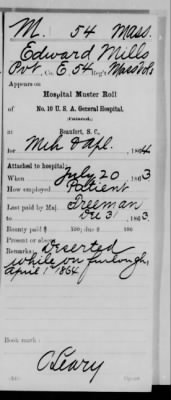 M. 54 Mass.
Edward Mills
Pvt, Co. E. 54 Reg't Mass Vols
Appears on
Hospital Muster Roll
of No. 10 U. S. A. General Hospital,
Beaufort, S. C.,
for Mch & Apl, 1864
Attached to hospital:
When July 20, 1863
How employed Patient
Last paid by Maj. Freeman
to Dec 31, 1863.
Bounty paid $ 100; due $ 100
Present or absent
Remarks: Deserted
while on furlough,
April 1864
Book mark:
O'Leary